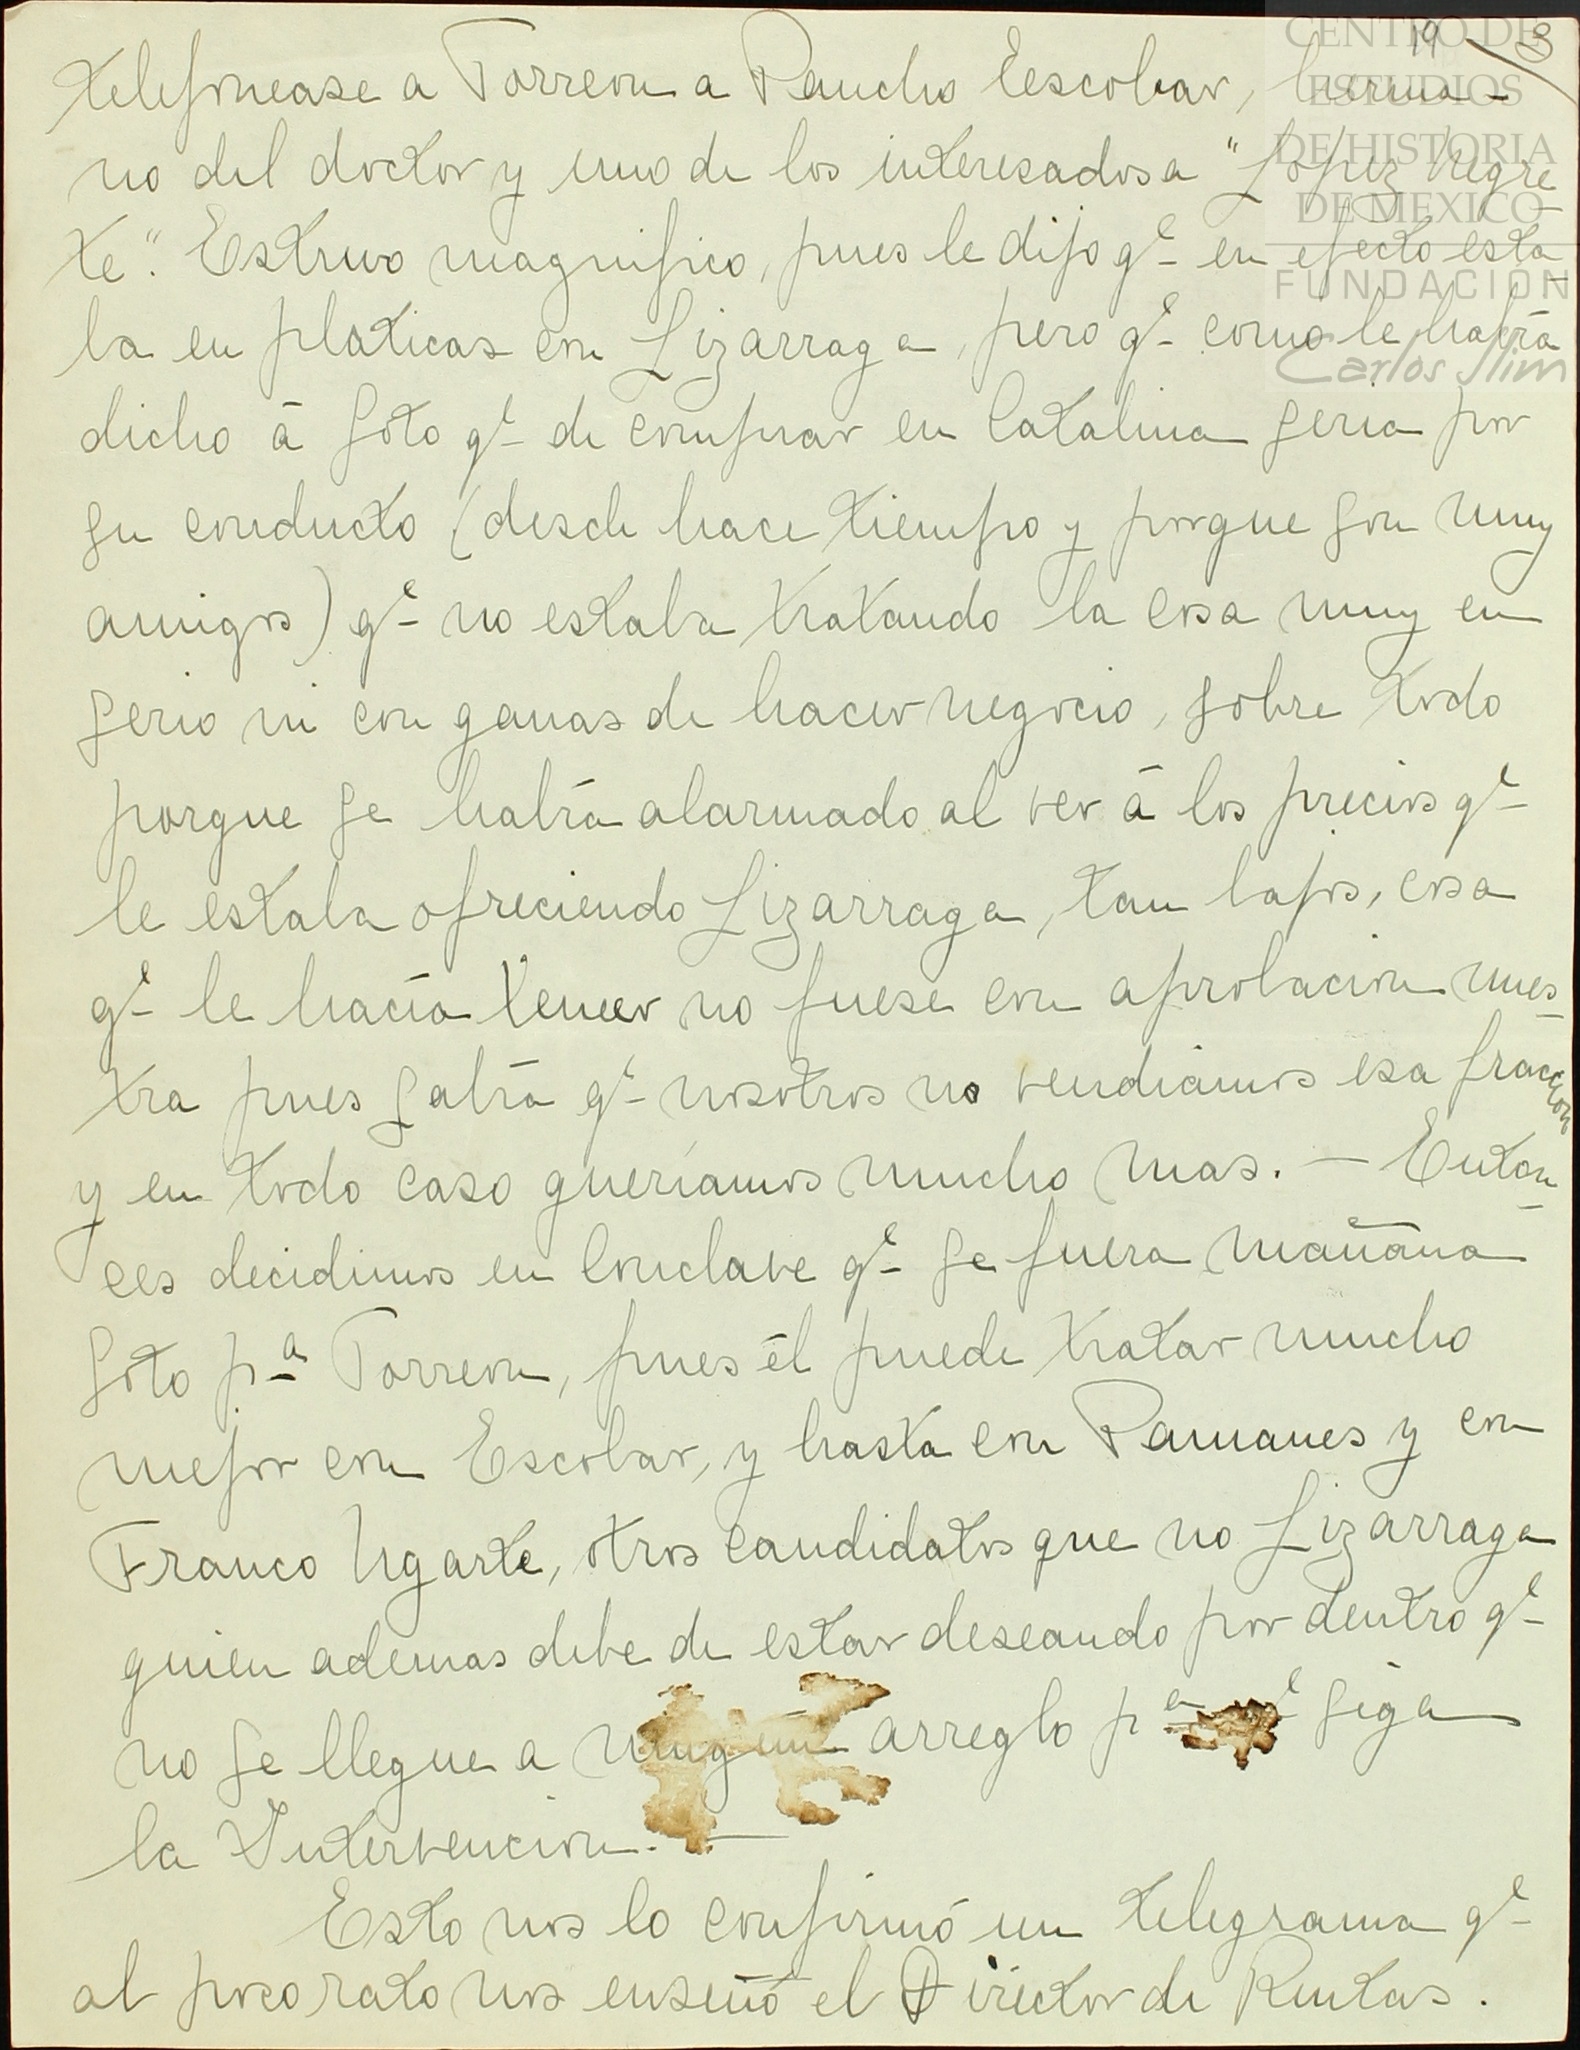 19
telefonease a Torreon a Pancho Escobar, herma-
no del doctor y uno de los interesados a "Lopez Negre-
te". Estuvo magnifico, pues le dijo qe en efecto esta-
ba en platicas con Lizarraga, pero qe como le había
dicho á Soto qe de comprar en Catalina seria por
su conducto (desde hace tiempo y porque son muy
amigos) qe no estaba tratando la cosa muy en
serio ni con ganas de hacer negocio, sobre todo
porque se había alarmado al ver á los precios qe
le estaba ofreciendo Lizarraga, tan bajos, cosa
qe le hacía temer no fuese con aprobacion nues-
tra pues sabía qe nosotros no vendiamos esa fraccion
y en todo caso queríamos mucho mas. — Enton-
ces decidimos en Conclave qe se fuera mañana
Soto pa Torreon, pues él puede tratar mucho
mejor con Escobar, y hasta con Pamanes y con
Franco Ugarte, otros candidatos que no Lizarraga
quien ademas debe de estar deseando por dentro qe
no se llegue a ningun arreglo pa qe siga
la Intervencion. —
Esto nos lo confirmó un telegrama qe
al poco rato nos enseñó el Director de Rentas.
CENTRO DE
ESTUDIOS
DE HISTORIA
DE MEXICO
FUNDACIÓN
Carlos Slim